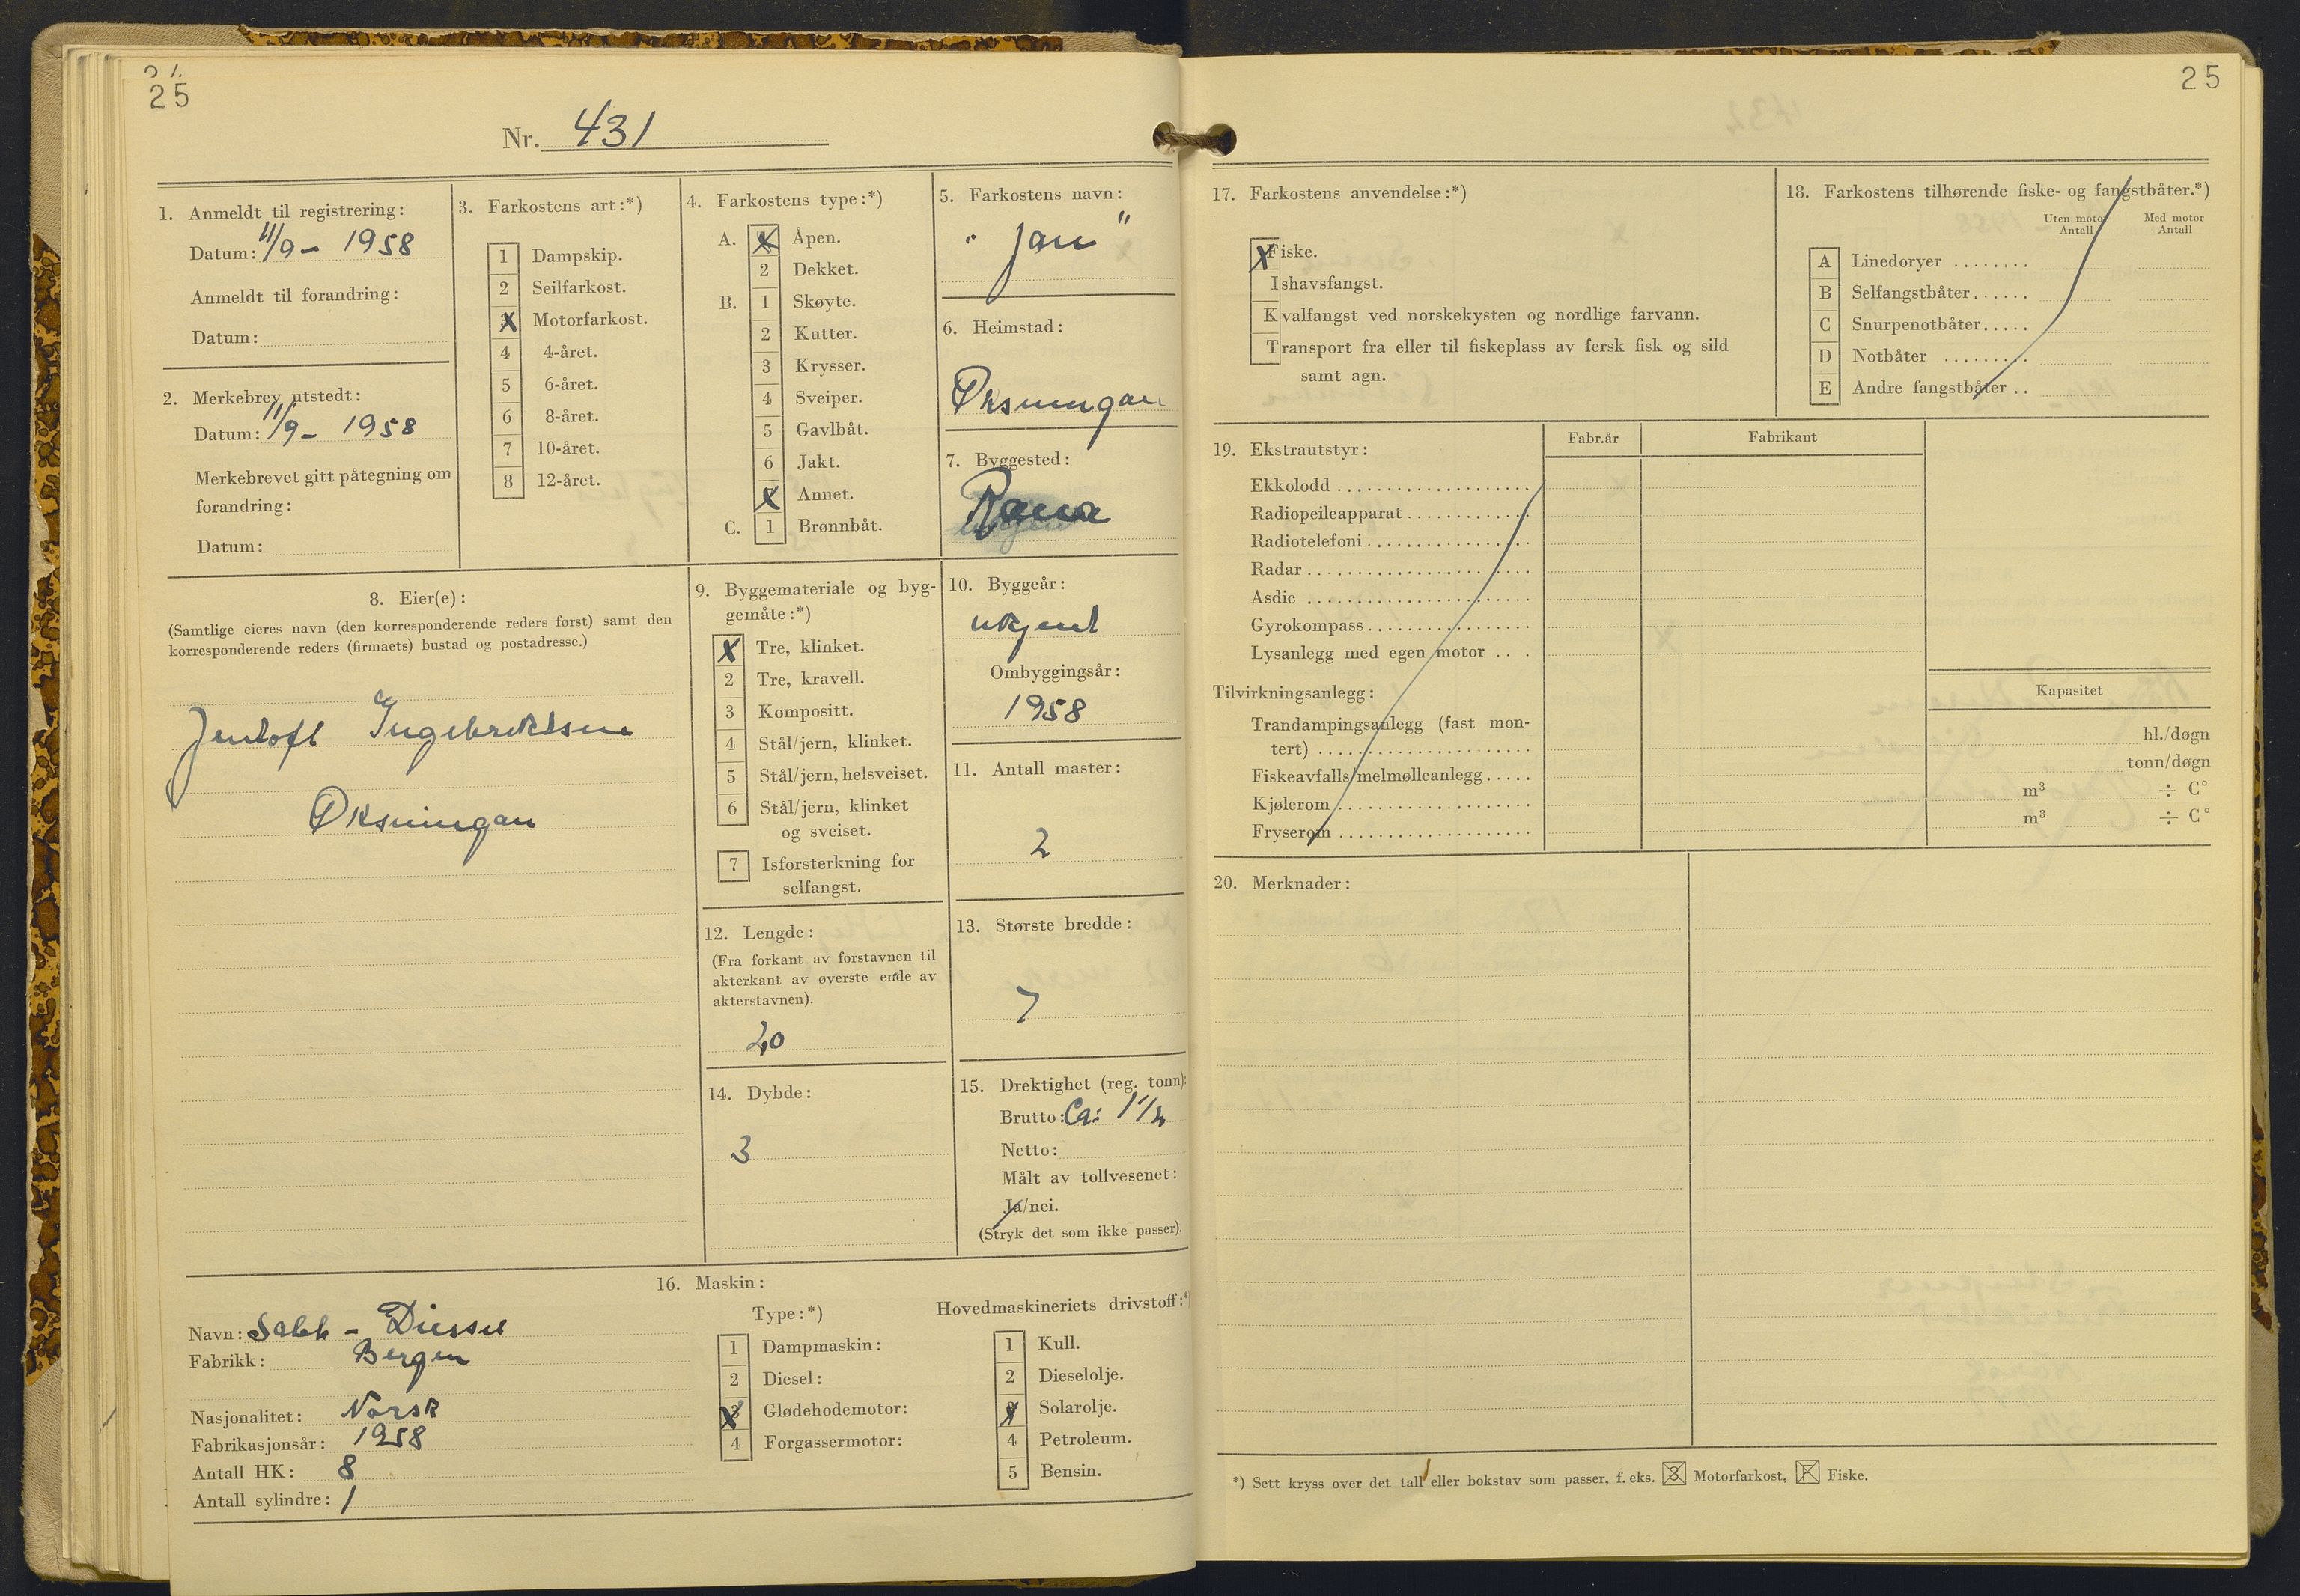 25
Nr. 431
1. Anmeldt til registrering:
Datum: 11/9 - 1958
Anmeldt til forandring:
Datum:
2. Merkebrev utstedt:
Datum: 11/9 - 1958
Merkebrevet gitt påtegning om
forandring:
Datum:
3. Farkostens art:*)
1 Dampskip.
2 Seilfarkost.
X Motorfarkost.
4 4-året.
5 6-året.
6 8-året.
7 10-året.
8 12-året.
4. Farkostens type:*)
A. X Åpen.
2 Dekket.
B. 1 Skøyte.
2 Kutter.
3 Krysser.
4 Sveiper.
5 Gavlbåt.
6 Jakt.
X Annet.
C. 1 Brønnbåt.
5. Farkostens navn:
"Jan"
6. Heimstad:
Øksningan
7. Byggested:
Rana
8. Eier(e):
(Samtlige eieres navn (den korresponderende reders først) samt den
korresponderende reders (firmaets) bustad og postadresse.)
Jentoft Ingebrektsen
Øksningan
9. Byggemateriale og byg-
gemåte:*)
X Tre, klinket.
2 Tre, kravell.
3 Kompositt.
4 Stål/jern, klinket.
5 Stål/jern, helsveiset.
6 Stål/jern, klinket
og sveiset.
7 Isforsterkning for
selfangst.
10. Byggeår:
ukjent
Ombyggingsår:
1958
11. Antall master:
2
12. Lengde:
(Fra forkant av forstavnen til
akterkant av øverste ende av
akterstavnen).
20
13. Største bredde:
7
14. Dybde:
3
15. Drektighet (reg. tonn):
Brutto: Ca: 1 1/2
Netto:
Målt av tollvesenet:
Ja/nei.
(Stryk det som ikke passer).
16. Maskin:
Navn: Sabb - Diessel
Fabrikk: Bergen
Nasjonalitet: Norsk
Fabrikasjonsår: 1958
Antall HK: 8
Antall sylindre: 1
Type:*)
1 Dampmaskin:
2 Diesel:
X Glødehodemotor:
4 Forgassermotor:
Hovedmaskineriets drivstoff:*)
1 Kull.
2 Dieselolje.
X Solarolje.
4 Petroleum.
5 Bensin.
25
17. Farkostens anvendelse:*)
X Fiske.
Ishavsfangst.
Kvalfangst ved norskekysten og nordlige farvann.
Transport fra eller til fiskeplass av fersk fisk og sild
samt agn.
18. Farkostens tilhørende fiske- og fangstbåter.*)
Uten motor Med motor
Antall Antall
A Linedoryer ........
B Selfangstbåter......
C Snurpenotbåter.....
D Notbåter .........
E Andre fangstbåter ..
19. Ekstrautstyr:
Fabr.år Fabrikant
Ekkolodd
Radiopeileapparat
Radiotelefoni
Radar
Asdic
Gyrokompass
Lysanlegg med egen motor ...
Tilvirkningsanlegg: Kapasitet
Trandampingsanlegg (fast mon-
tert) hl./døgn
Fiskeavfalls/melmølleanlegg..... tonn/døgn
Kjølerom m³ ÷ C°
Fryserom m³ ÷ C°
20. Merknader:
*) Sett kryss over det tall eller bokstav som passer, f. eks. 3 Motorfarkost, F Fiske.